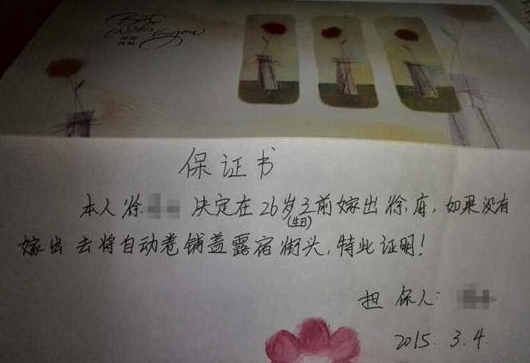 Best
Wishes
for you
保证书
本人徐 决定在26岁之前嫁出徐府,如果没有
(生日)
嫁出去将自动卷铺盖露宿街头,特此证明!
担保人:
2015. 3. 4